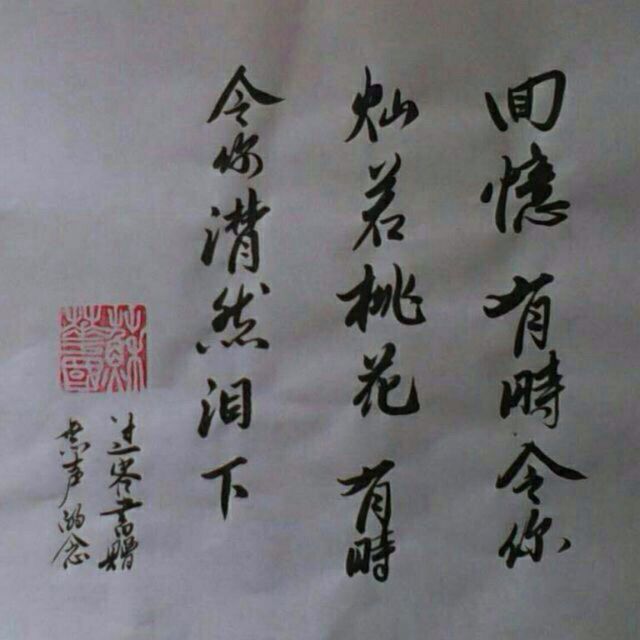 回憶有時令你
灿若桃花有時
令你潸然泪下
过客書贈